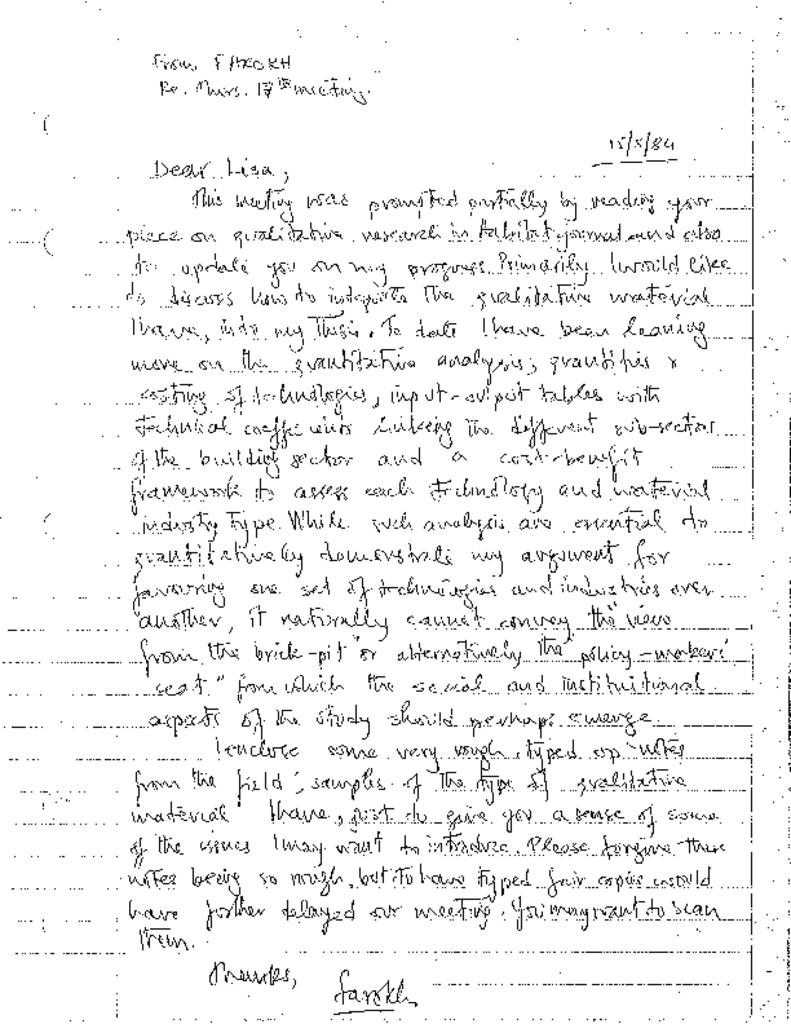 From FAROKH
Re. Thurs. 17th meeting.
15/5/84
Dear Lisa,
This meeting was prompted partially by reading your
piece on qualitative research in Habitat journal and also
to update you on my progress. Primarily I would like
to discuss how to integrate the qualitative material
I have, into my thesis. To date I have been leaning
more on the quantitative analysis; quantities &
costing of technologies, input-output tables with
technical coefficients linking the different sub-sectors
of the building sector and a cost-benefit
framework to assess each technology and material
industry type. While such analysis are essential to
quantitatively demonstrate my argument for
favouring one set of technologies and industries over
another, it naturally cannot convey the "view
from the brick-pit" or alternatively the "policy-makers'
seat" from which the social and institutional
aspects of the study should perhaps emerge.
I enclose some very rough, typed up 'notes
from the field', samples of the type of qualitative
material I have, just to give you a sense of some
of the issues I may want to introduce. Please forgive these
notes being so rough, but to have typed fair copies would
have further delayed our meeting. You may want to scan
them.
Thanks,
Farokh